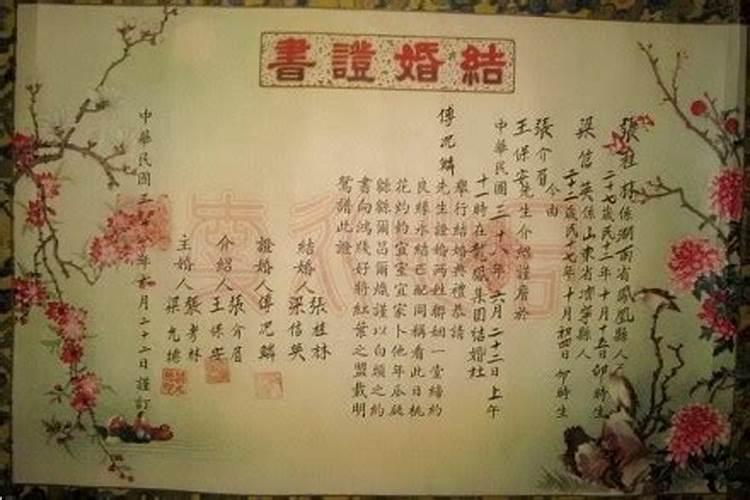 結婚證書
張桂林係湖南省鳳凰縣人
二十七歲民十二年十月十五日卯時生
梁信英係山東省濟寧縣人
二十二歲民十七年十月初四日卯時生
今由
張介眉
王保安先生介紹謹詹於
中華民國三十八年六月二十二日上午
十一時在龍鳳集團結婚社
舉行結婚典禮恭請
傅况麟先生證婚兩姓聯姻一堂締約
良緣永結匹配同稱看此日桃
花灼灼宜室宜家卜他年瓜瓞
緜緜爾昌爾熾謹以白頭之約
書向鴻牋好將紅葉之盟載明
鴛譜此證
結婚人 張桂林
梁信英
證婚人 傅况麟
介紹人 張介眉
王保安
主婚人 張孝林
梁允德
中華民國三十八年六月二十二日謹訂